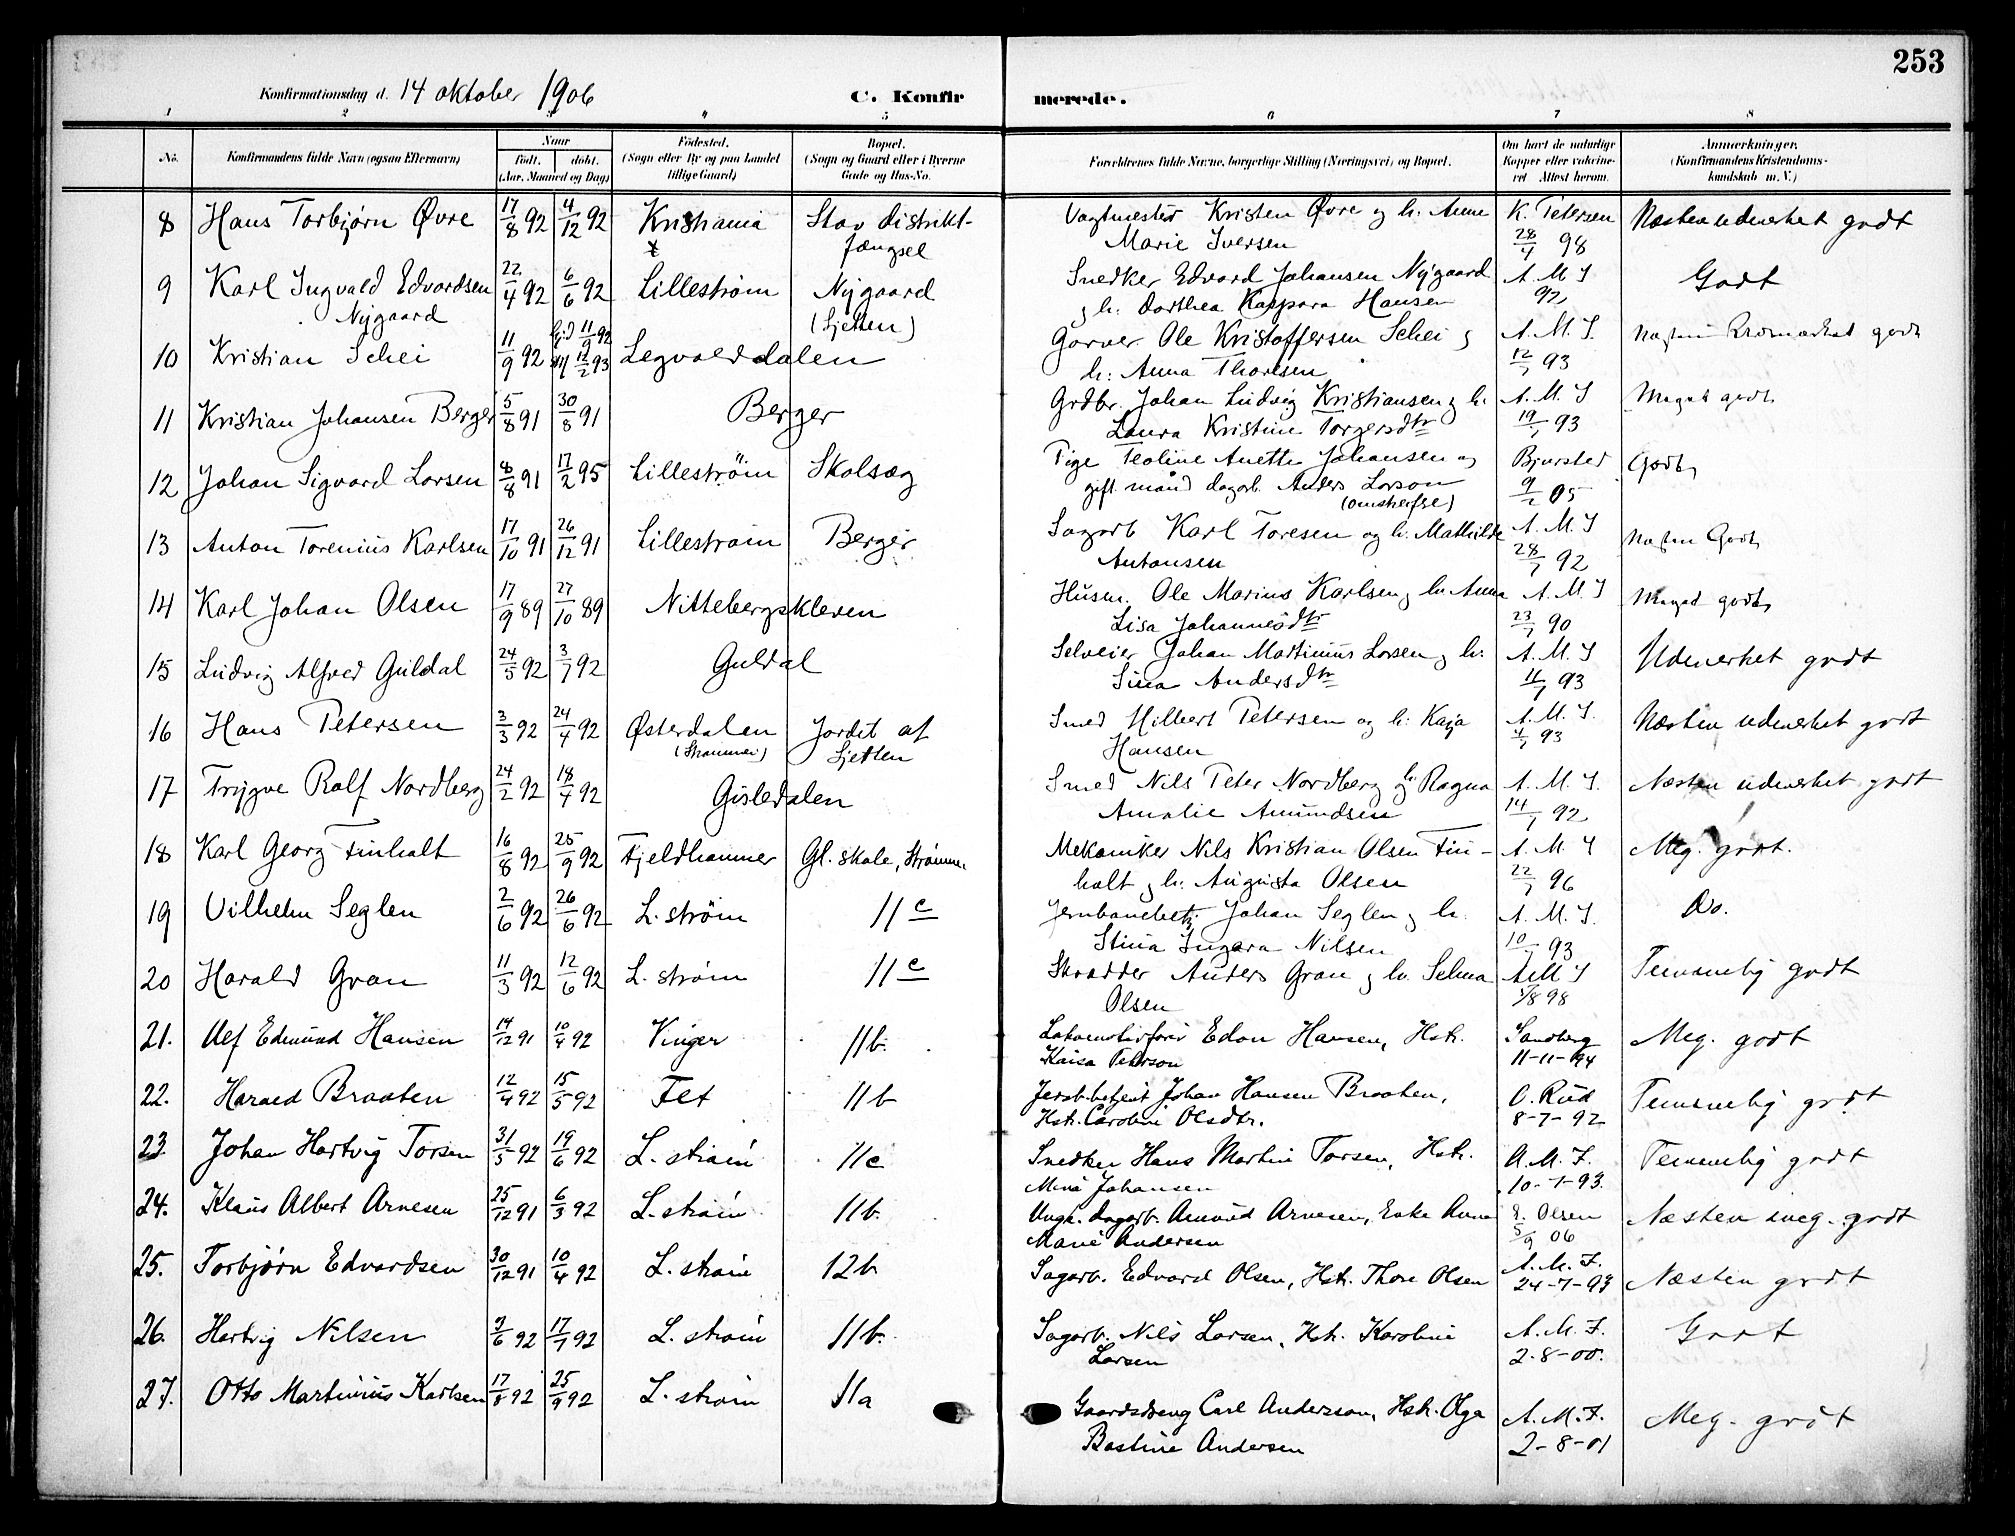 253
Konfirmationsdag d. 14 oktober 1906 C. Konfirmerede.
1 2 3 4 5 6 7 8
No. Konfirmandens fulde Navn (ogsaa Efternavn) Naar født. døbt. (Aar, Maaned og Dag) Fødested. (Sogn eller By og paa Landet tillige Gaard) Bopæl. (Sogn og Gaard eller i Byerne Gade og Hus-No. Forældrenes fulde Navne, borgerlige Stilling (Næringsvei) og Bopæl. Om havt de naturlige Kopper eller vaccineret Attest herom. Anmærkninger. (Konfirmandens Kristendomskundskab m. V.)
8 Hans Torbjørn Øvre 17/8 92 4/12 92 Kristiania Stav distrikt- Vagtmester Kristen Øvre og h. Anne K. Petersen Næsten udmerket godt
fængsel Marie Iversen 28/4 98
9 Karl Ingvald Edvardsen 22/4 92 6/6 92 Lillestrøm Nygaard Snedker Edvard Johansen Nygaard A. M. F Godt
Nygaard (Sjetten) og h. Dorthea Kaspara Hansen 92
10 Kristian Schei 11/9 92 11/9 92 12/2 93 Garver Ole Kristoffersen Schei og A. M. F. Næsten udmærket godt
h. Anna Thorlsen 12/7 93
11 Kristian Johansen Berger 5/8 91 30/8 91 Berger Grdbr. Johan Ludvig Kristiansen og h. A. M. F Meget godt
Laura Kristine Torgersdtr 19/7 93
12 Johan Sigvard Larsen 8/8 91 17/2 95 Lillestrøm Skolsæg Pige Teoline Anette Johansen og Bjursted Godt
gift mand dagarb. Anders Larson 9/2 05
13 Anton Torenius Karlsen 17/10 91 26/12 91 Lillestrøm Berger Sagarb Karl Toresen og h. Mathilde A. M. F
Antonsen 28/7 92 Næsten Godt
14 Karl Johan Olsen 17/9 89 27/10 89 Nittebergskleven Husm. Ole Marius Karlsen og h. Anna A. M. F Meget godt
Lisa Johannesdtr 23/7 90
15 Ludvig Alfred Guldal 24/5 92 3/7 92 Guldal Selveier Johan Martinius Larsen og h. A. M. F Udmerket godt
Sina Andersdtr 11/7 93
16 Hans Petersen 3/3 92 24/4 92 Østerdalen Jordet af Smed Hilbert Petersen og h. Kaja A. M. F. Næsten udmerket godt
(Strømmen) Sjetten Hansen 4/7 93
17 Trygve Rolf Nordberg 24/2 92 18/4 92 Gisledalen Smed Nils Peter Nordberg og h. Ragna A. M. F. Næsten udmerket godt
Amalie Amundsen 14/7 92
18 Karl Georg Finholt 16/8 92 25/9 92 Fjeldhammer Gl. skole, Strømmen Mekaniker Nils Kristian Olsen Fin- A. M. F Meg. godt.
holt og h. Augusta Olsen 22/7 96
19 Vilhelm Seglen 2/6 92 26/6 92 L. strøm 11 c Jernbanebetj. Johan Seglen og h. A. M. F. Do.
Stina Ingera Nilsen 10/7 93
20 Harald Gran 11/3 92 12/6 92 L. strøm 11 c Skradder Anders Gran og h. Selma A M F Temmelig godt
Olsen 1/8 98
21. Ulf Edmund Hansen 14/12 91 10/4 92 Vinger 11 b. Lokomotivfører Edon Hansen, Hstr. Sandberg Meg. godt
Kaisa Peterson 11-11-94
22. Harald Braaten 12/4 92 15/5 92 Fet 11 b Jernb.betjent Johan Hansen Braaten, O. Rud Temmelig godt
Hstr. Caroline Olsdtr. 8-7-92
23. Johan Hartvig Torsen 31/5 92 19/6 92 L. strøm 11c Snedker Hans Martin Torsen, Hstr. A. M. F. Temmelig godt
Mina Johansen 10-7-93.
24. Klaus Albert Arnesen 25/12 91 6/3 92 L. strøm 11 b. Ungk. dagarb. Amund Arnesen, Enke Anna Olsen Næsten meg. godt
Marie Andersen 5/9 06
25. Torbjørn Edvardsen 30/12 91 10/4 92 L. strøm 12 b. Sagarb. Edvard Olsen, Hstr. Thore Olsen A. M. F. Næsten godt
24-7-93
26. Hartvig Nilsen 3/6 92 17/7 92 L. strøm 11 b. Sagarb. Nils Larsen, Hstr. Karoline A. M. F. Godt
Larsen 2-8-00.
27. Otto Martinius Karlsen 17/8 92 25/9 92 L. strøm 11a Gaardsdreng Carl Andersson, Hstr. Olga A. M. F. Meg. godt
Bastine Andersen 2-8-01